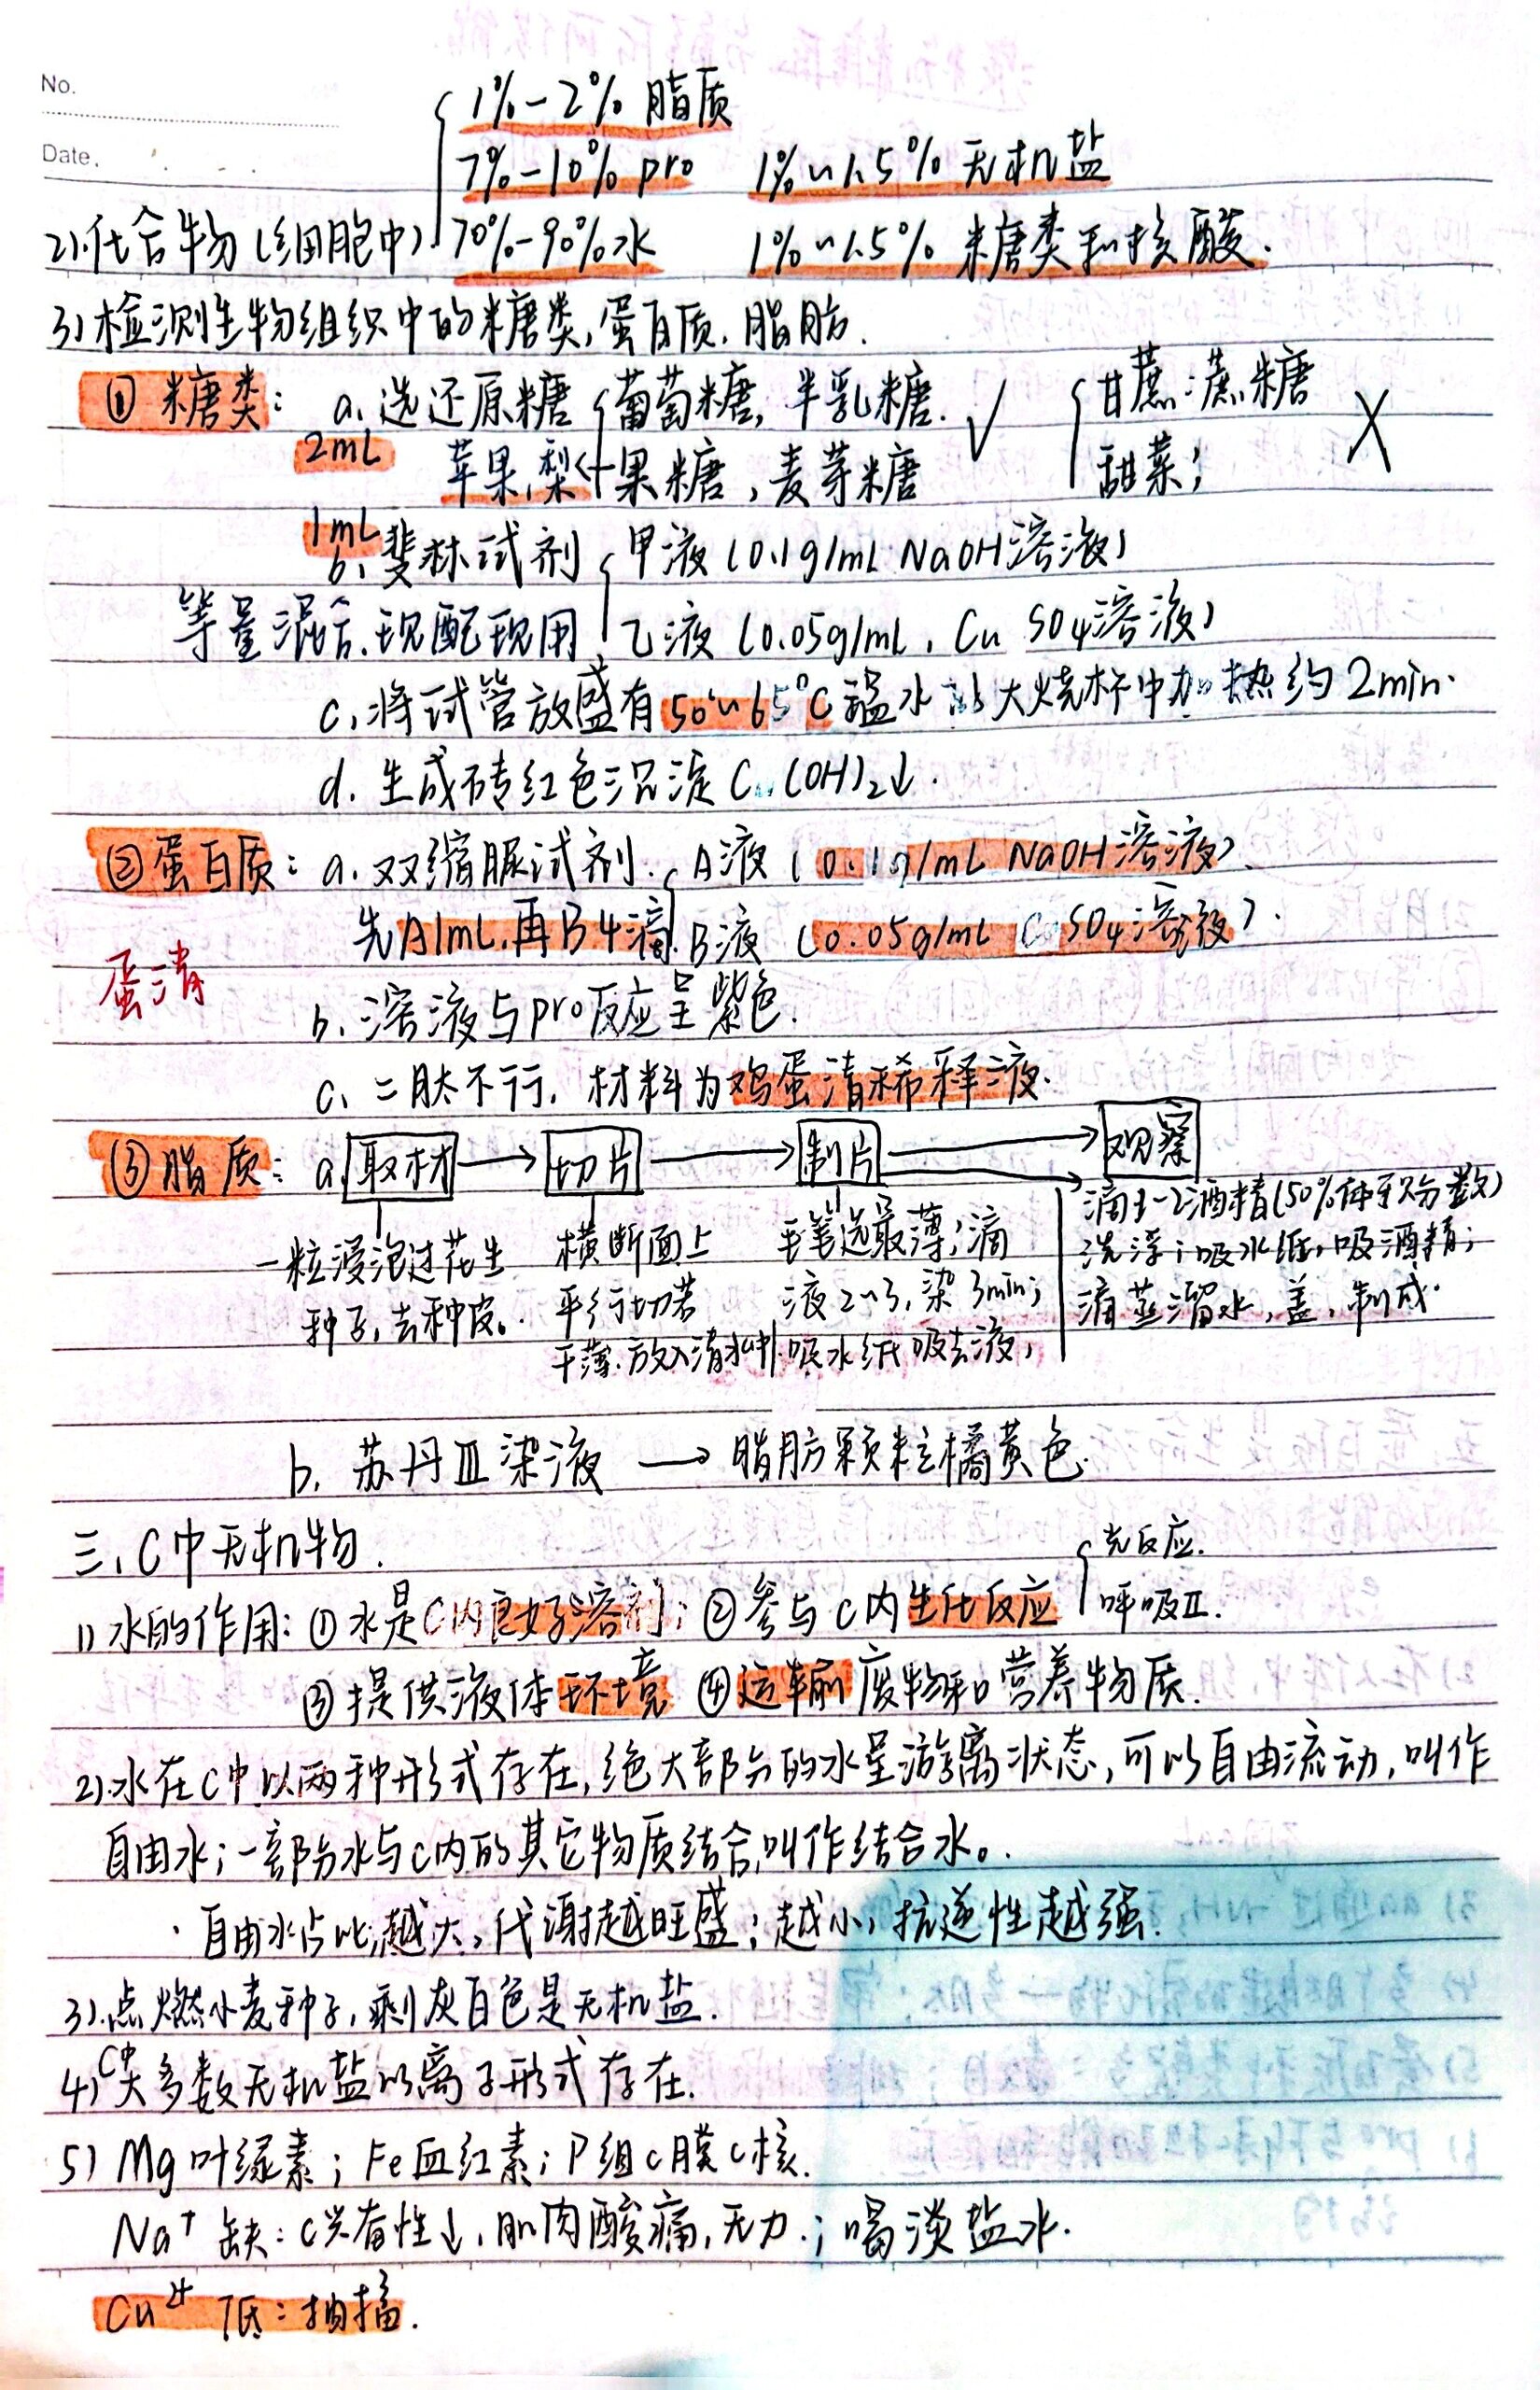 No.
Date.
1%-2% 脂质
7%-10% pro 1%~1.5% 无机盐
2).化合物(细胞中) 70%-90%水 1%~1.5% 糖类和核酸.
3)检测生物组织中的糖类,蛋白质.脂肪.
① 糖类: a.选还原糖 葡萄糖,半乳糖. ✓ 甘蔗:蔗糖 X
2mL 苹果,梨← 果糖,麦芽糖 甜菜;
1mL
b.斐林试剂 甲液(0.1g/mL NaOH溶液)
等量混合.现配现用 乙液(0.05g/mL, CuSO4溶液)
c.将试管放盛有50~65℃温水的大烧杯中加热约2min.
d. 生成砖红色沉淀Cu(OH)2↓.
②蛋白质: a.双缩脲试剂. A液(0.1g/mL NaOH溶液)
先A1mL,再B4滴. B液(0.05g/mL CuSO4溶液).
蛋清
b.溶液与pro反应呈紫色.
c. 二肽不行, 材料为鸡蛋清稀释液.
③脂质: a.取材→切片→制片→观察
一粒浸泡过花生 横断面上 毛笔选最薄;滴 滴1-2酒精(50%体积分数)
种子,去种皮. 平行切若 液2~3,染3min; 洗浮;吸水纸,吸酒精;
干薄.放入清水中. 吸水纸吸去液; 滴蒸溜水,盖,制成.
b. 苏丹Ⅲ染液 → 脂肪颗粒橘黄色.
三.C中无机物.
光反应.
1)水的作用:①水是C内良好溶剂;②参与c内生化反应 呼吸Ⅱ.
③提供液体环境 ④运输废物和营养物质.
2).水在C中以两种形式存在,绝大部分的水呈游离状态,可以自由流动,叫作
自由水;一部分水与c内的其它物质结合,叫作结合水。
·自由水占比越大,代谢越旺盛;越小,抗逆性越强.
3).点燃小麦种子,剩灰白色是无机盐.
4)C中大多数无机盐以离子形式存在.
5) Mg叶绿素; Fe血红素;P组c膜c核.
Na⁺ 缺:C兴奋性↓,肌肉酸痛,无力.;喝淡盐水.
Cu²⁺ 低:抽搐.